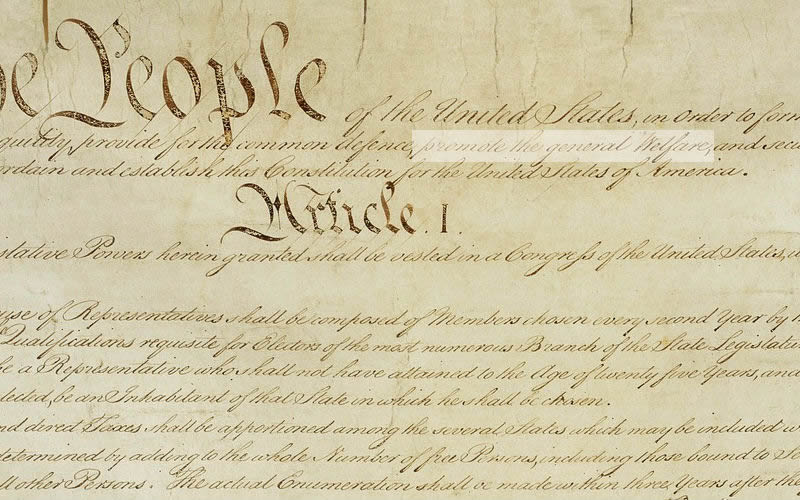 e People of the United States, in Order to form
quility, provide for the common defence, promote the general Welfare, and secu
rdain and establish this Constitution for the United States of America.
Article. I.
slative Powers herein granted shall be vested in a Congress of the United States, w
use of Representatives shall be composed of Members chosen every second Year by
Qualifications requisite for Electors of the most numerous Branch of the State Legislatu
be a Representative who shall not have attained to the Age of twenty five Years, and
elected, be an Inhabitant of that State in which he shall be chosen.
nd direct Taxes shall be apportioned among the several States which may be included w
determined by adding to the whole Number of free Persons, including those bound to Se
ll other Persons. The actual Enumeration shall be made within three Years after the